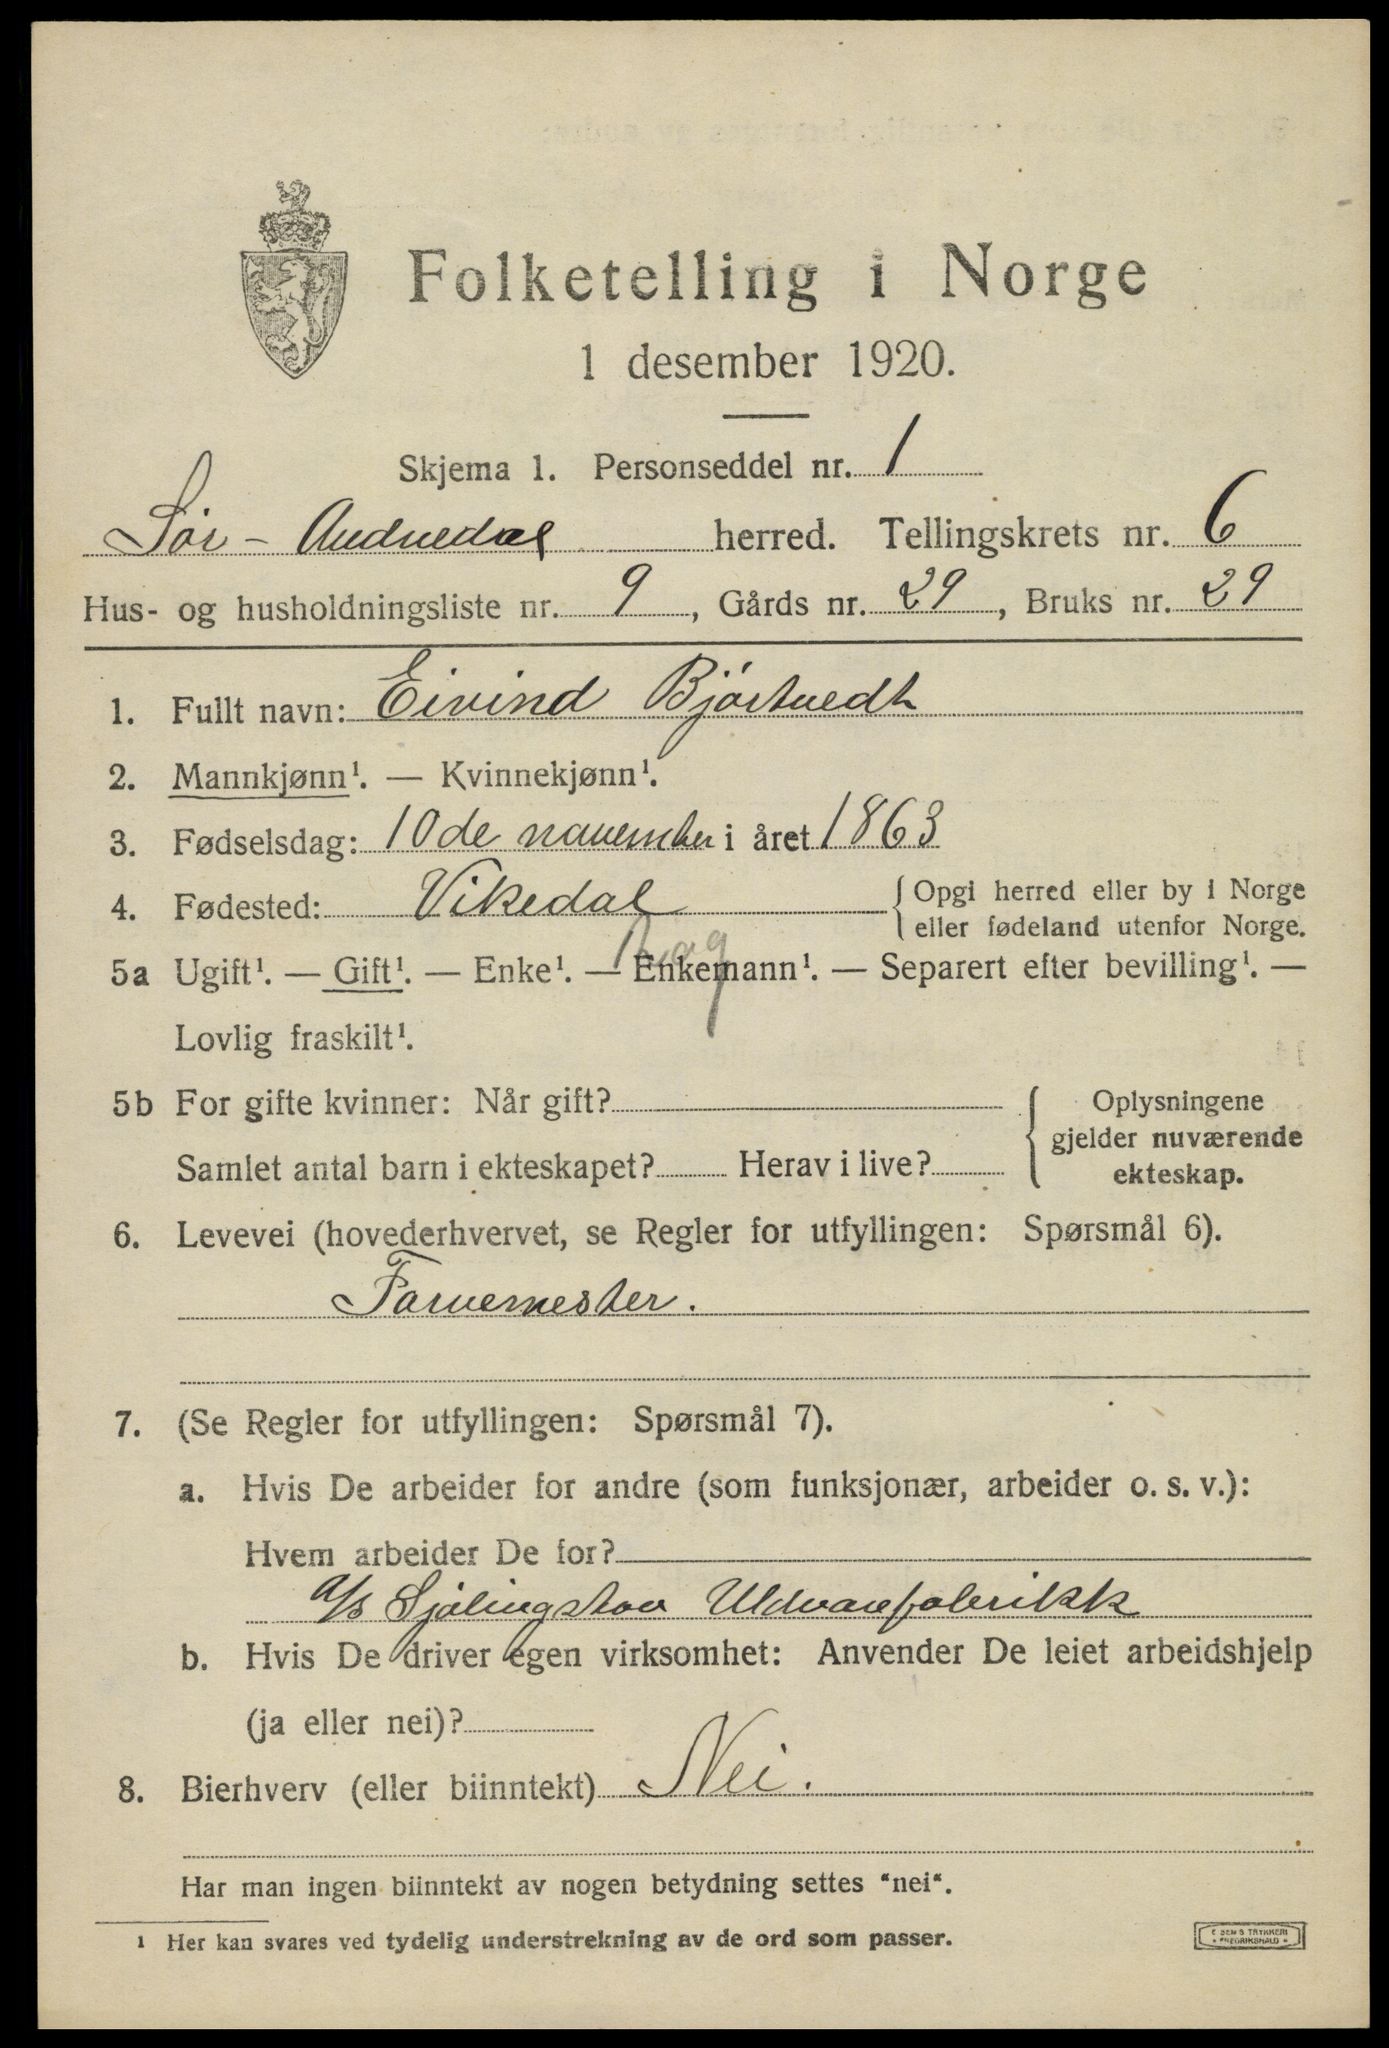 Folketelling i Norge
1 desember 1920.
Skjema 1. Personseddel nr. 1
Sør-Audnedal herred. Tellingskrets nr. 6
Hus- og husholdningsliste nr. 9, Gårds nr. 29, Bruks nr. 29
1. Fullt navn: Eivind Bjørtvedt
2. Mannkjønn¹. — Kvinnekjønn¹.
3. Fødselsdag: 10de november i året 1863
4. Fødested: Vikedal { Opgi herred eller by i Norge
eller fødeland utenfor Norge.
Rog
5a Ugift¹. — Gift¹. — Enke¹. — Enkemann¹. — Separert efter bevilling¹. —
Lovlig fraskilt¹.
5b For gifte kvinner: Når gift? { Oplysningene
gjelder nuværende
Samlet antal barn i ekteskapet? Herav i live?
ekteskap.
6. Levevei (hovederhvervet, se Regler for utfyllingen: Spørsmål 6).
Farvemester.
7. (Se Regler for utfyllingen: Spørsmål 7).
a. Hvis De arbeider for andre (som funksjonær, arbeider o. s. v.):
Hvem arbeider De for?
a/s Sjølingstad Uldvarefabrikk
b. Hvis De driver egen virksomhet: Anvender De leiet arbeidshjelp
(ja eller nei)?
8. Bierhverv (eller biinntekt) Nei.
Har man ingen biinntekt av nogen betydning settes "nei".
1 Her kan svares ved tydelig understrekning av de ord som passer.
TRYKKERI
FREDRIKSHALD